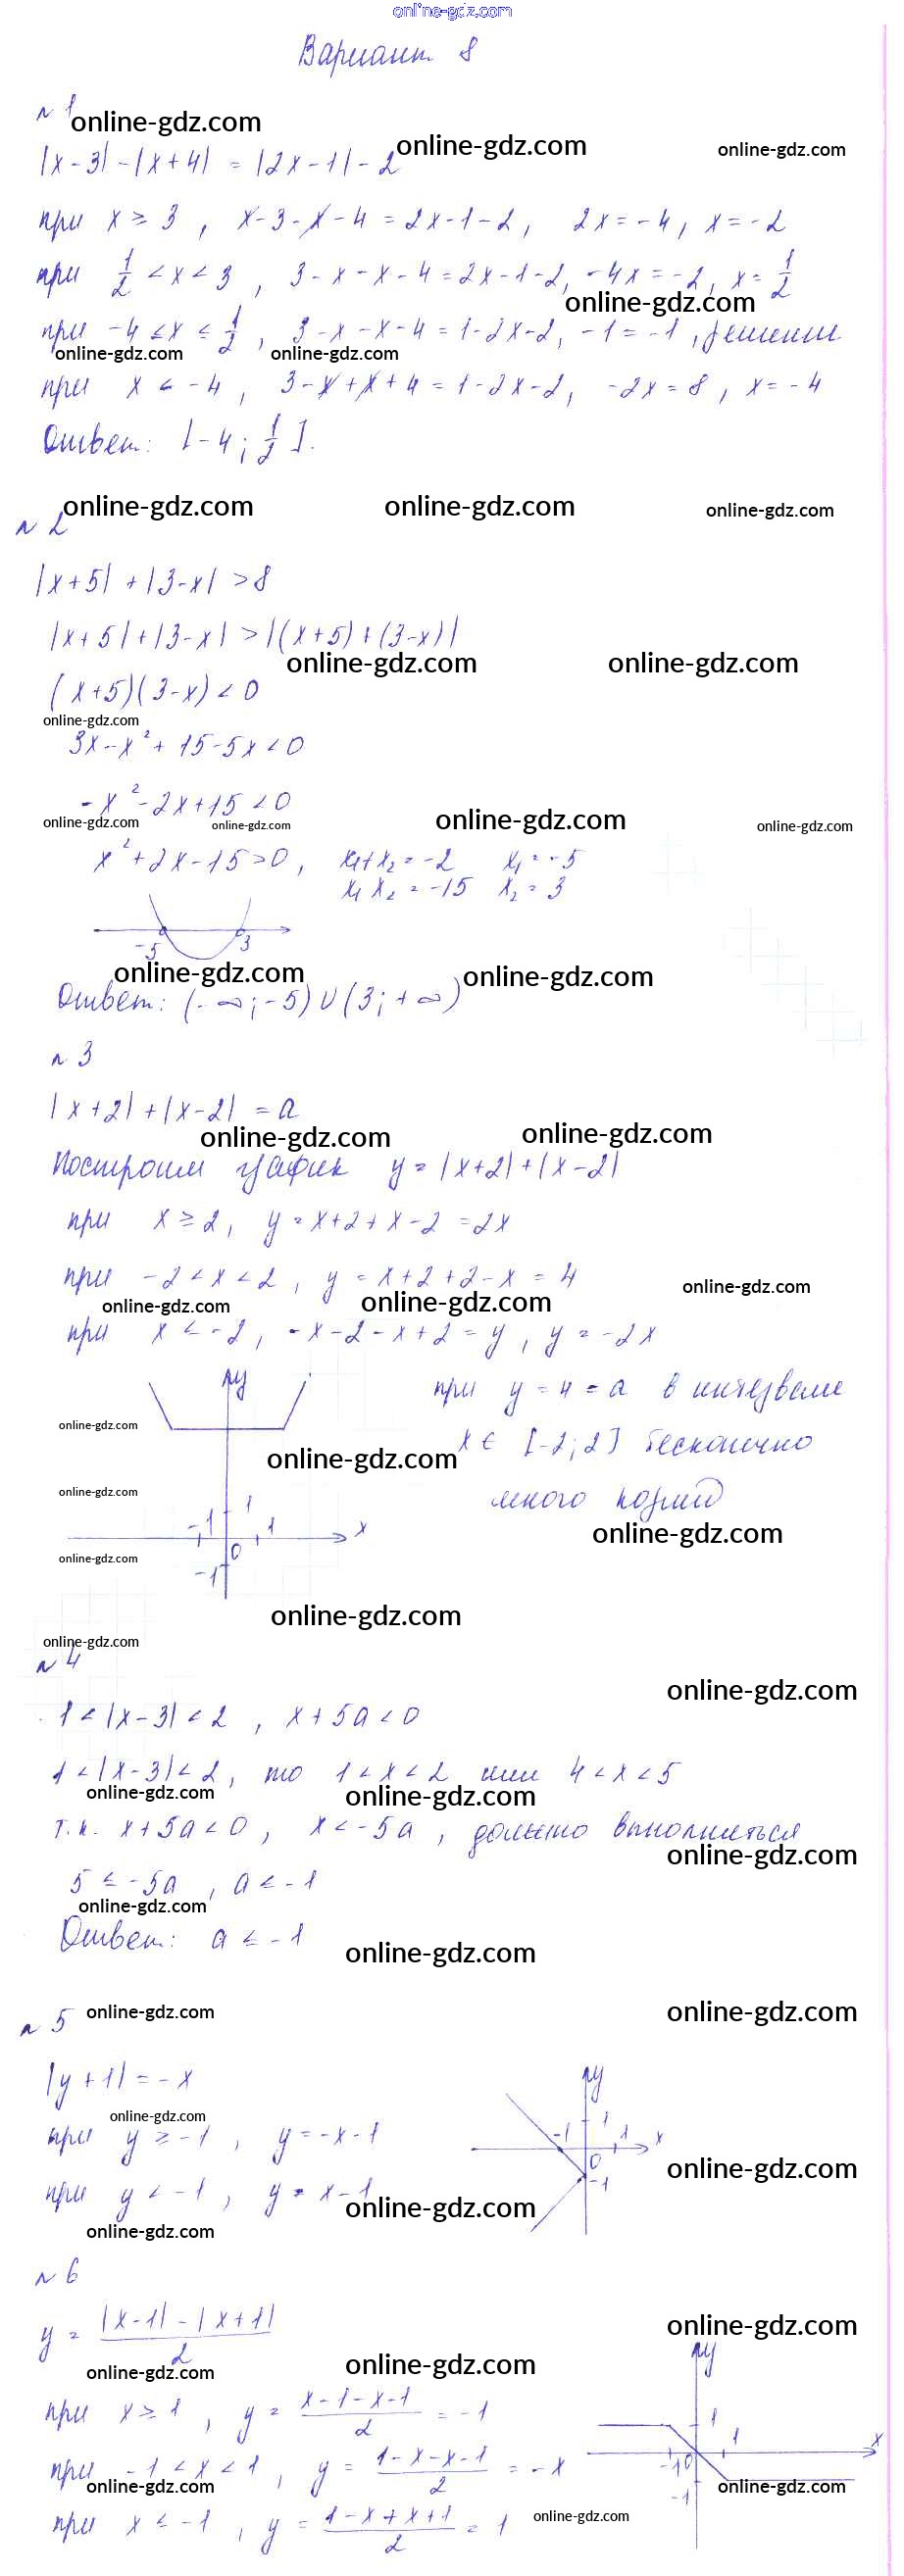 online-gdz.com
Вариант 8
№1
online-gdz.com
online-gdz.com
online-gdz.com
|x-3| - |x+4| = |2x-1| - 2
при x ≥ 3, x-3-x-4 = 2x-1-2, 2x = -4, x = -2
при 1/2 < x < 3, 3-x-x-4 = 2x-1-2, -4x = -2, x = 1/2
online-gdz.com
при -4 ≤ x ≤ 1/2, 3-x-x-4 = 1-2x-2, -1 = -1, решении
online-gdz.com
online-gdz.com
при x < -4, 3-x+x+4 = 1-2x-2, -2x = 8, x = -4
Ответ: [-4; 1/2].
online-gdz.com
online-gdz.com
online-gdz.com
№2
|x+5| + |3-x| > 8
|x+5| + |3-x| > |(x+5) + (3-x)|
online-gdz.com
online-gdz.com
(x+5)(3-x) < 0
online-gdz.com
3x - x² + 15 - 5x < 0
-x² - 2x + 15 < 0
online-gdz.com
online-gdz.com
online-gdz.com
online-gdz.com
x² + 2x - 15 > 0, x₁+x₂ = -2 x₁ = -5
x₁x₂ = -15 x₂ = 3
-5 3
online-gdz.com
online-gdz.com
Ответ: (-∞; -5) ∪ (3; +∞)
№3
|x+2| + |x-2| = a
online-gdz.com
online-gdz.com
Построим график y = |x+2| + |x-2|
при x ≥ 2, y = x+2+x-2 = 2x
при -2 < x < 2, y = x+2+2-x = 4
online-gdz.com
online-gdz.com
online-gdz.com
при x ≤ -2, -x-2-x+2 = y, y = -2x
y
при y = 4 = a в интервале
online-gdz.com
x ∈ [-2; 2] бесконечно
online-gdz.com
online-gdz.com
много корней
-1 1 1 x
online-gdz.com
online-gdz.com
0
-1
online-gdz.com
online-gdz.com
№4
online-gdz.com
1 < |x-3| < 2, x+5a < 0
1 < |x-3| < 2, то 1 < x < 2 или 4 < x < 5
online-gdz.com
online-gdz.com
т.к. x+5a < 0, x < -5a, должно выполняться
online-gdz.com
5 ≤ -5a, a ≤ -1
online-gdz.com
Ответ: a ≤ -1
online-gdz.com
№5
online-gdz.com
online-gdz.com
|y+1| = -x
y
online-gdz.com
при y ≥ -1, y = -x-1
-1 1 1 x
0
-1
online-gdz.com
при y < -1, y = x-1
online-gdz.com
online-gdz.com
№6
y = (|x-1| - |x+1|)/2
online-gdz.com
online-gdz.com
online-gdz.com
y
при x ≥ 1, y = (x-1-x-1)/2 = -1
1 1 x
-1 0
-1
при -1 < x < 1, y = (1-x-x-1)/2 = -x
online-gdz.com
online-gdz.com
при x ≤ -1, y = (1-x+x+1)/2 = 1
online-gdz.com